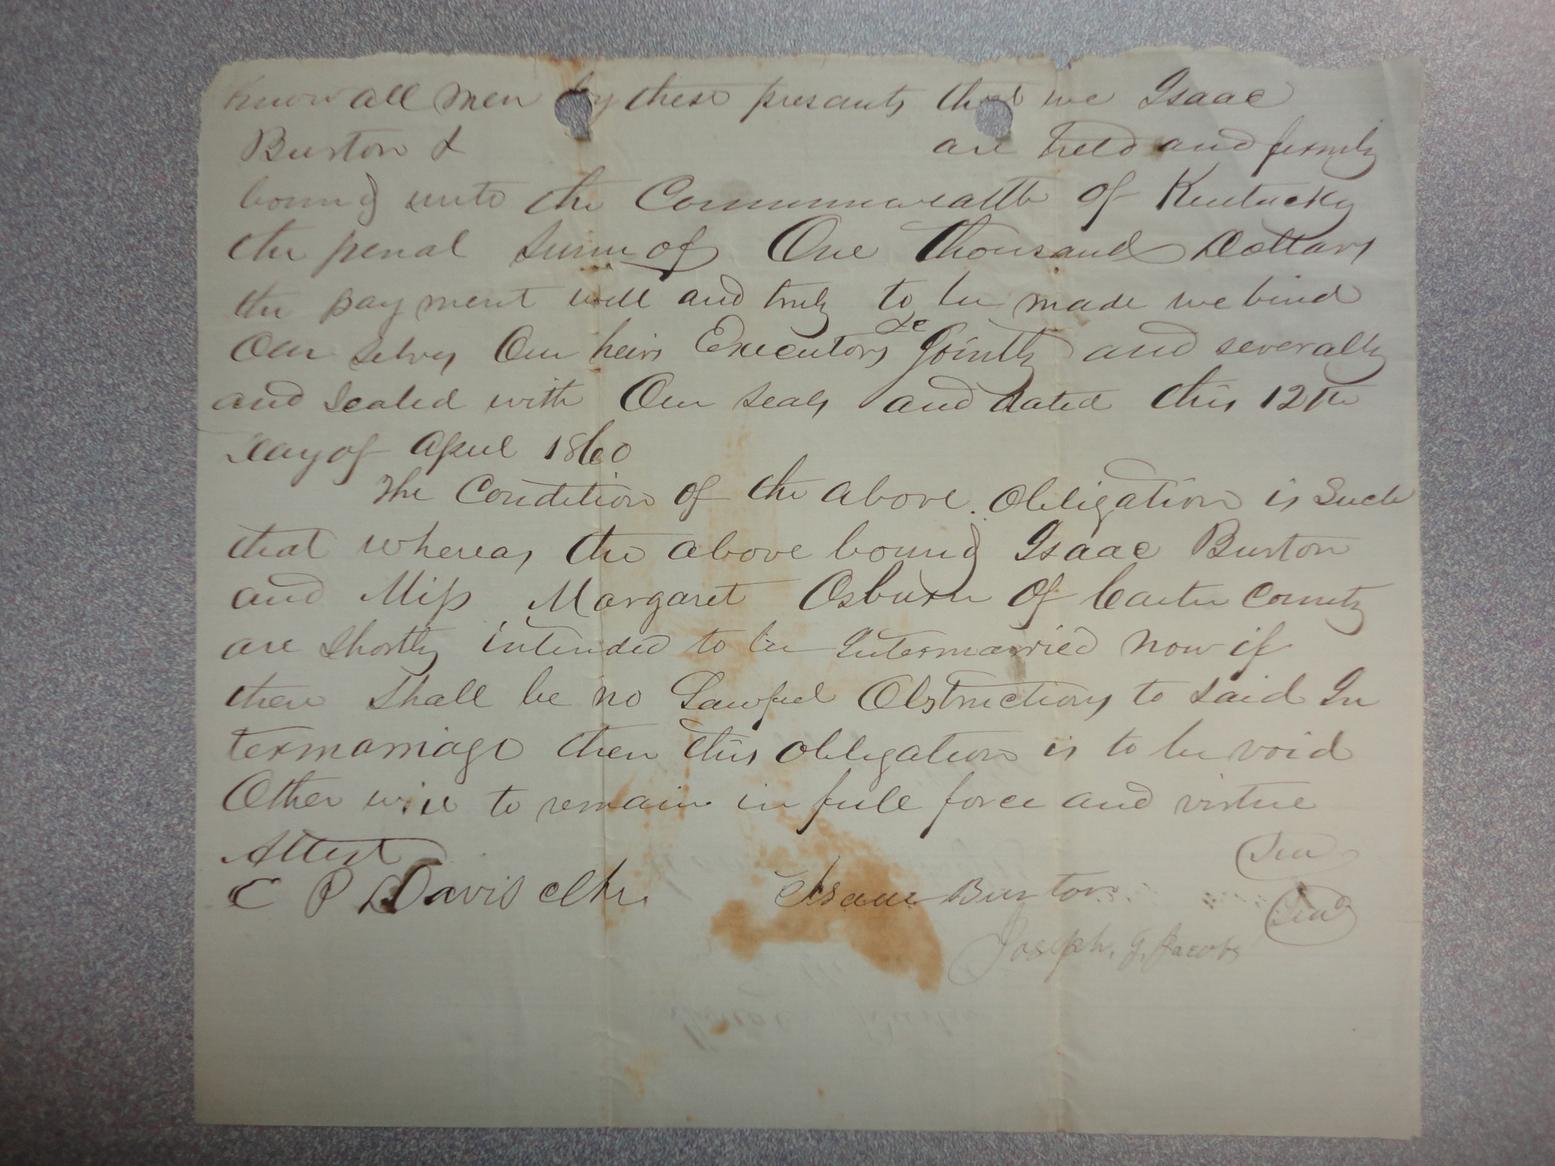 Know all men by these presants that we Isaac
Burton & are held and firmly
bound unto the Commonwealth of Kentucky
the penal sum of One thousand Dollars
the payment well and truly to be made we bind
Our selves Our heirs Executors &c Jointly and severally
and sealed with Our seals and dated this 12th
day of April 1860
The Condition of the above Obligation is Such
that whereas the above bound Isaac Burton
and Miss Margaret Osburn Of Carter County
are shortly intended to be Intermarried now if
there shall be no Lawful Obstructions to said In
termarriage then this obligation is to be void
Other wise to remain in full force and virtue
Attest (Seal)
C P Davis clk. Isaac Burton (Seal)
Joseph. G. Jacobs